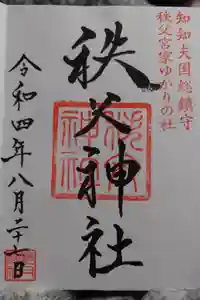 知知夫国総鎮守
秩父宮家ゆかりの社
秩父神社
令和四年八月二十七日